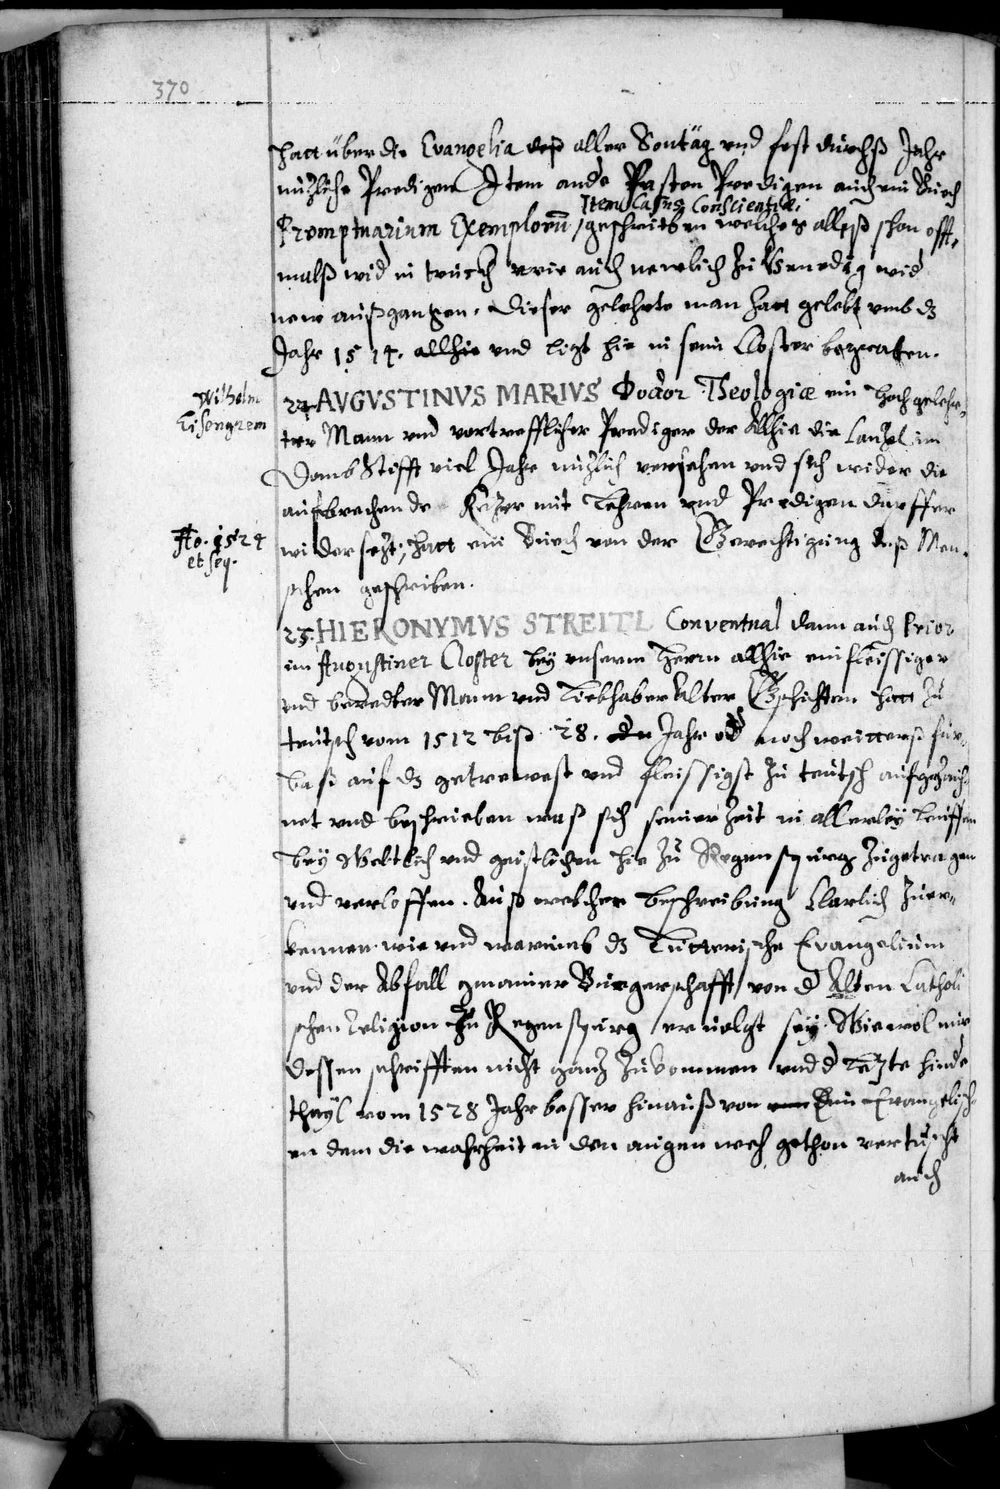 370
hatt über die Evangelia deß aller Sontäg und fest durchß Jahr
nuzliche Predigen Item andre Fasten Predigen auch ein Buech
Item Casus Conscientiæ.
Promptuarium Exemplorū, geschriben welches alleß schon offt-
malß wid in truckh wie auch newlich zu Venedig wid
new außgangen. Dieser gelehrte man hatt gelebt umb dz
Jahr 1514. allhie und ligt hie in sein Closter begraben.
Wilhelm
Eisengrein
24 AVGVSTINVS MARIVS Doctor Theologiæ ein hochgelehr-
ter Mann und vortrefflicher Prediger der Allhie die Canzel im
Domb Stifft viel Jahr nuzlich versehen und sich wider die
außbrechende Kezer mit Lehren und Predigen dapffer
Ao. 1524
et seq.
widersezt, hatt ein Buech von der Gerechtigung deß Men-
schen geschriben.
25. HIERONYMVS STREITL Conventual dann auch Prior
im Augustiner Closter bey unserm Herrn allhie ein fleissiger
und beredter Mann und Liebhaber Alter Gschichten hatt zu
teutsch vom 1512 biß 28. Jahr od noch weitterß für-
baß auf dz getrewest und fleissigst zu teutsch aufgezaich-
net und beschrieben waß sich seiner Zeit in allerley leuffen
bey Weltlich und geistlichen hie zu Regenspurg zugetragen
und verloffen. Auß welcher beschreibung Clarlich zuer-
kennen wie und warumb dz Lutterische Evangelium
und der Abfall gmainer Burgerschafft von d Alten Catholi
schen Religion zu Regenspurg ervolgt sey. Wiewol mir
dessen schrifften nicht ganz zukommen und d lezte hinde
thayl vom 1528 Jahr besser hinauß von Evangelisch
en dem die wahrheit in den augen weh gethon vertuscht
auch